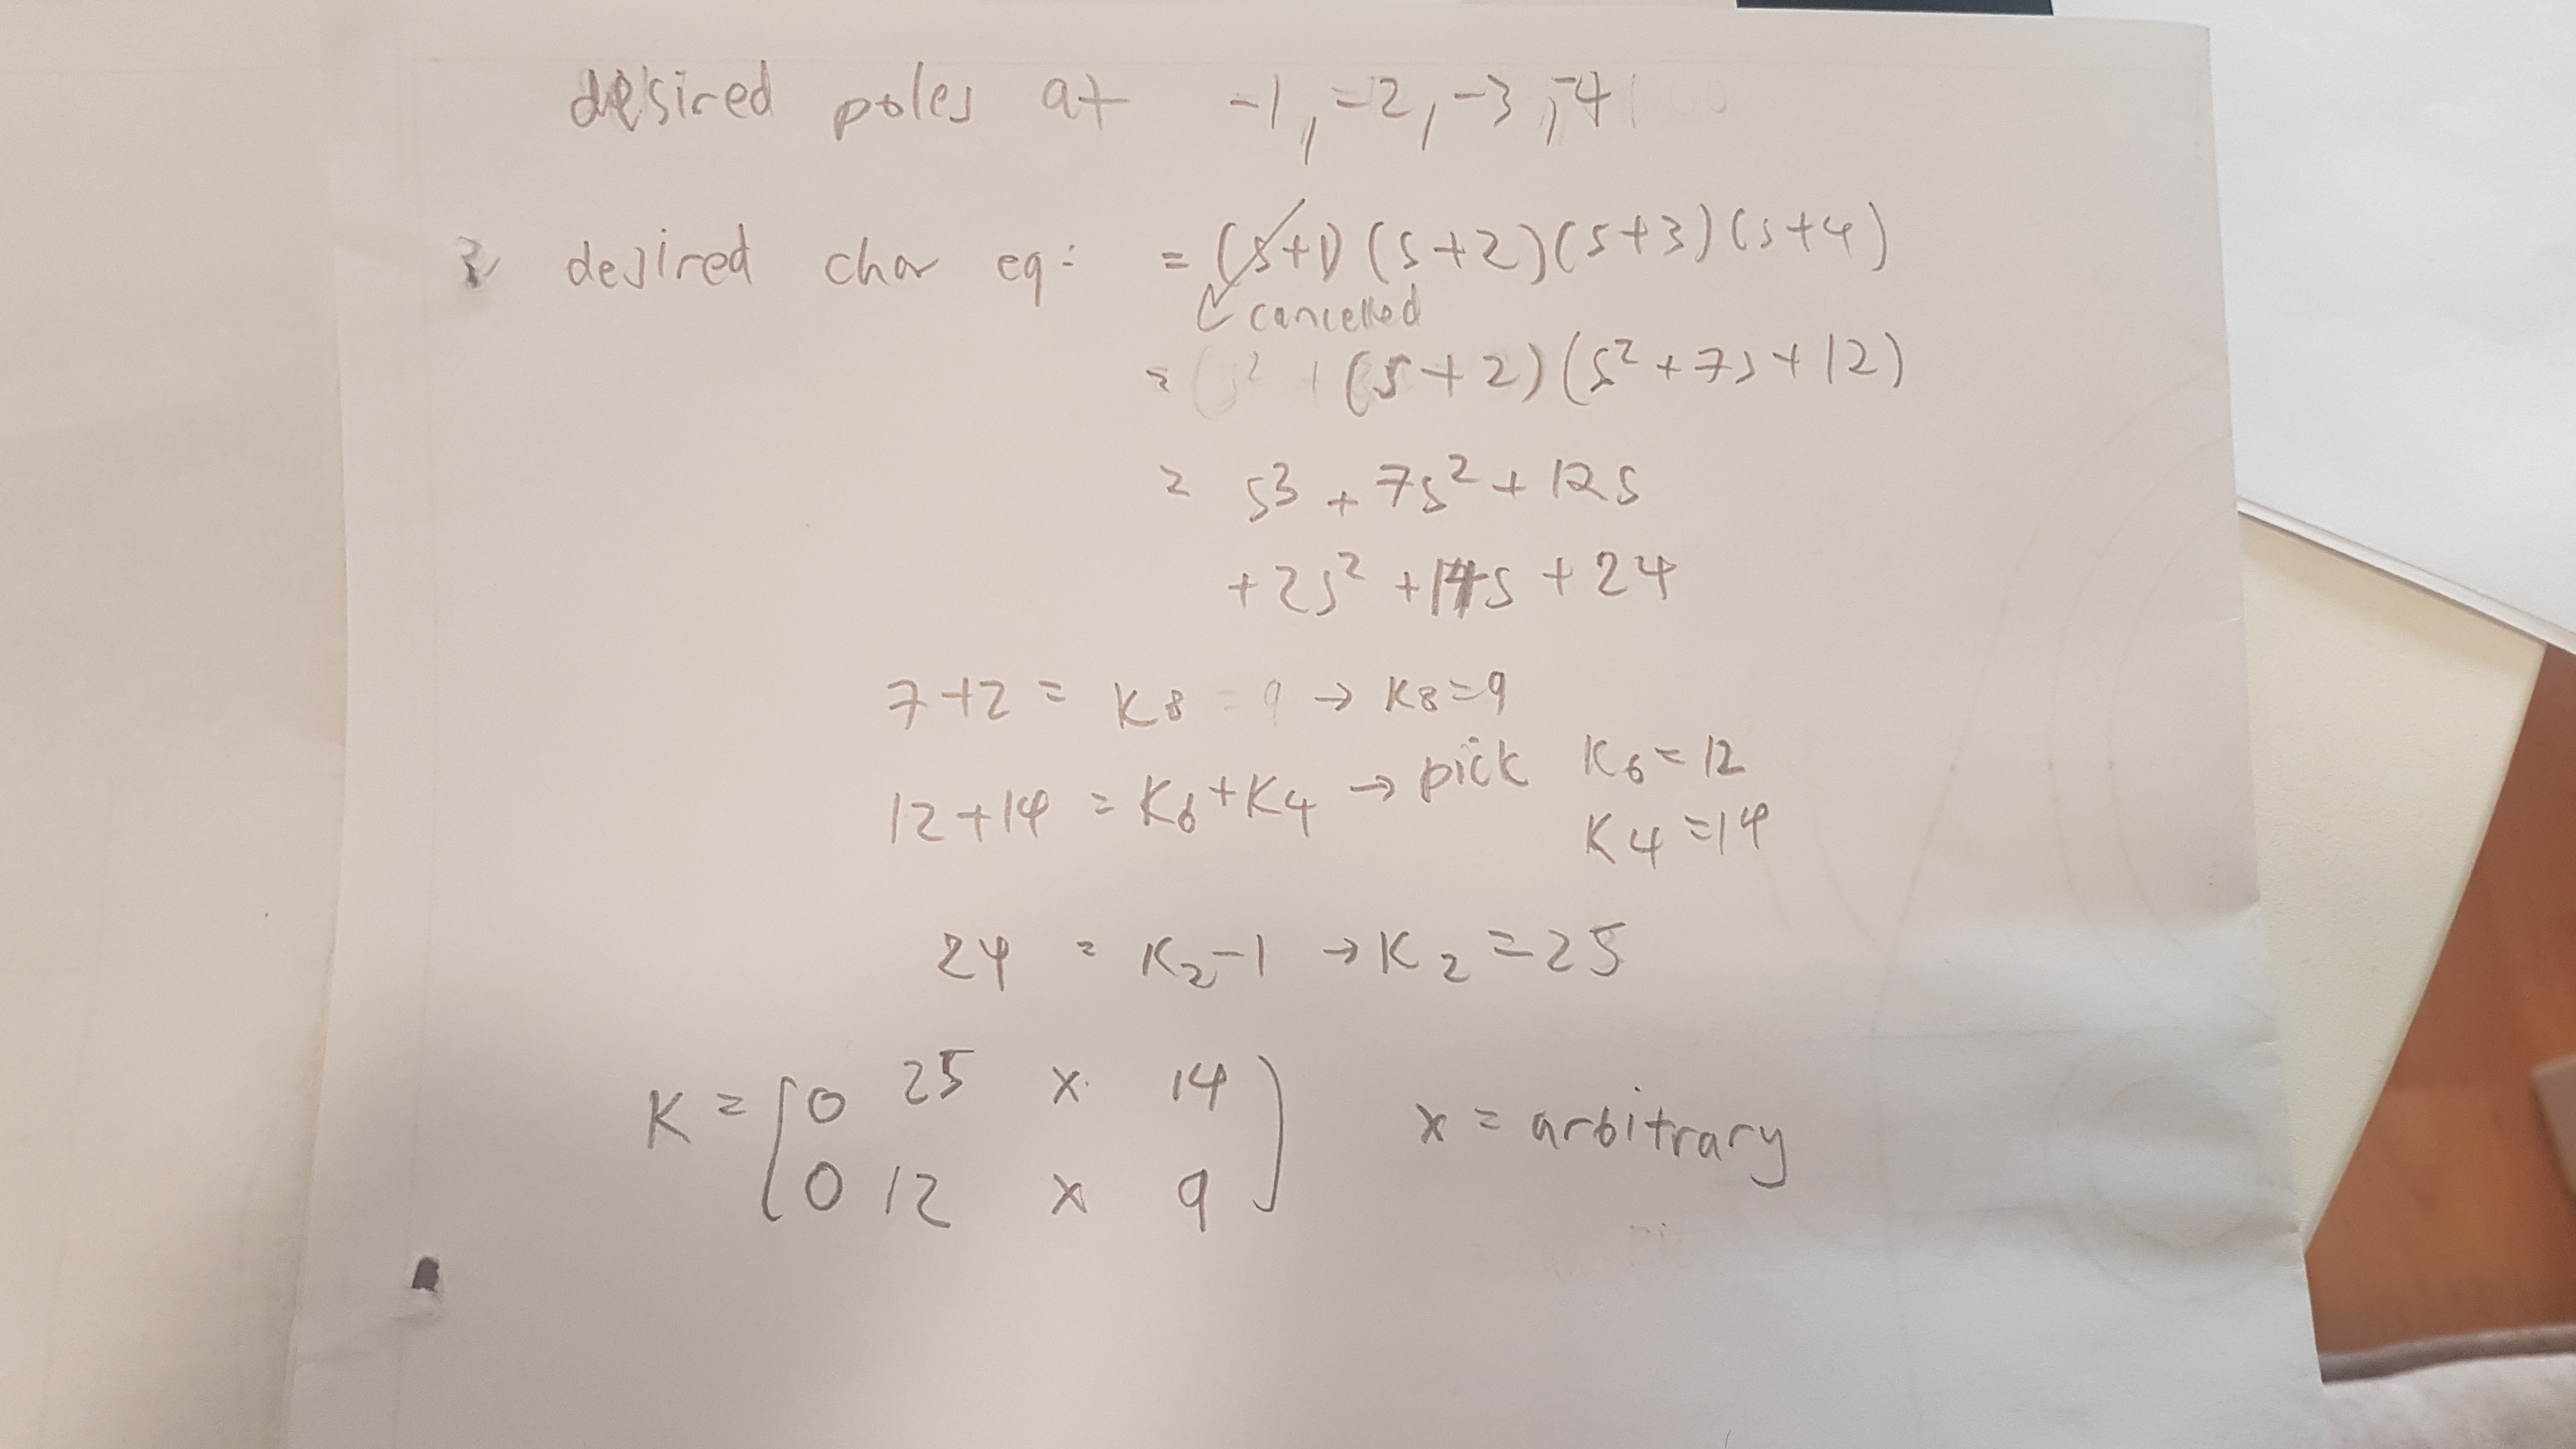 desired poles at -1, -2, -3, -4
desired char eq: = (s+1) (s+2)(s+3)(s+4)
cancelled
= (s+2)(s²+7s+12)
= s³ + 7s² + 12s
+ 2s² + 14s + 24
7+2 = K8 = 9 → K8=9
12+14 = K6+K4 → pick K6 = 12
K4 =14
24 = K2-1 → K2 = 25
K = [0 25 x 14
0 12 x 9] x = arbitrary